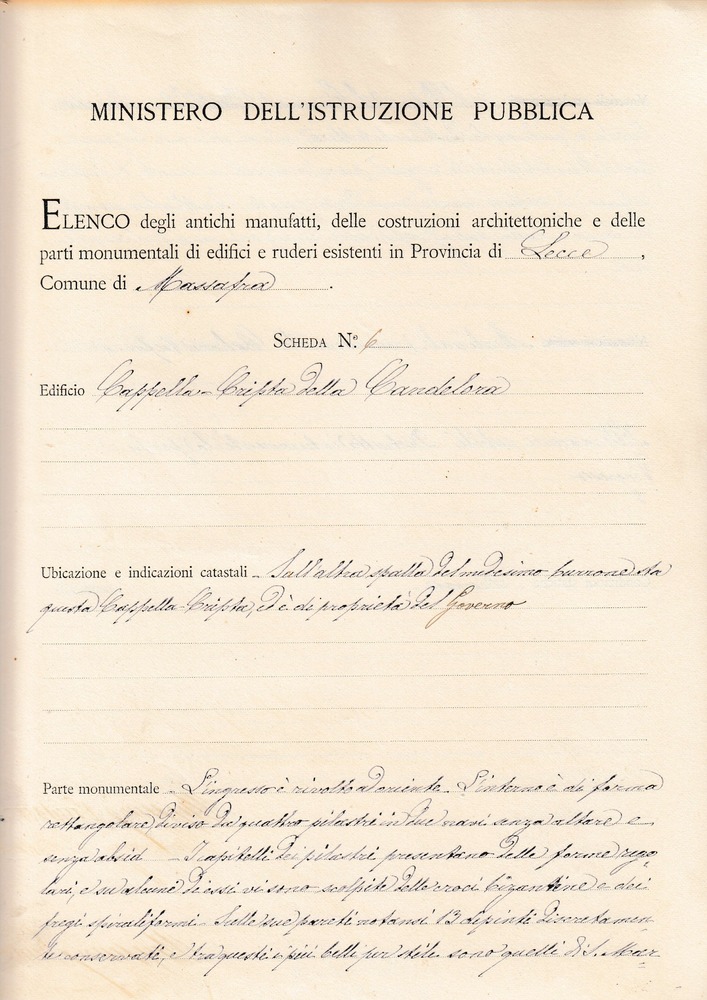 MINISTERO DELL'ISTRUZIONE PUBBLICA
ELENCO degli antichi manufatti, delle costruzioni architettoniche e delle
parti monumentali di edifici e ruderi esistenti in Provincia di Lecce,
Comune di Massafra.
SCHEDA N.° 6
Edificio Cappella-Cripta della Candelora
Ubicazione e indicazioni catastali - Sull'altra spalla del medesimo burrone sta
questa Cappella-Cripta, ed è di proprietà del Governo
Parte monumentale - L'ingresso è rivolto ad oriente. L'interno è di forma
rettangolare, diviso da quattro pilastri in due navi senza altare e
senza absid - I capitelli dei pilastri presentano delle forme rego-
lari, e su alcune di essi vi sono scolpite delle croci bizantine e dei
fregi spiraliformi - Sulle sue pareti notansi 13 dipinti discretamen-
te conservati, e tra questi i più belli per stile sono quelli di S. Mar-